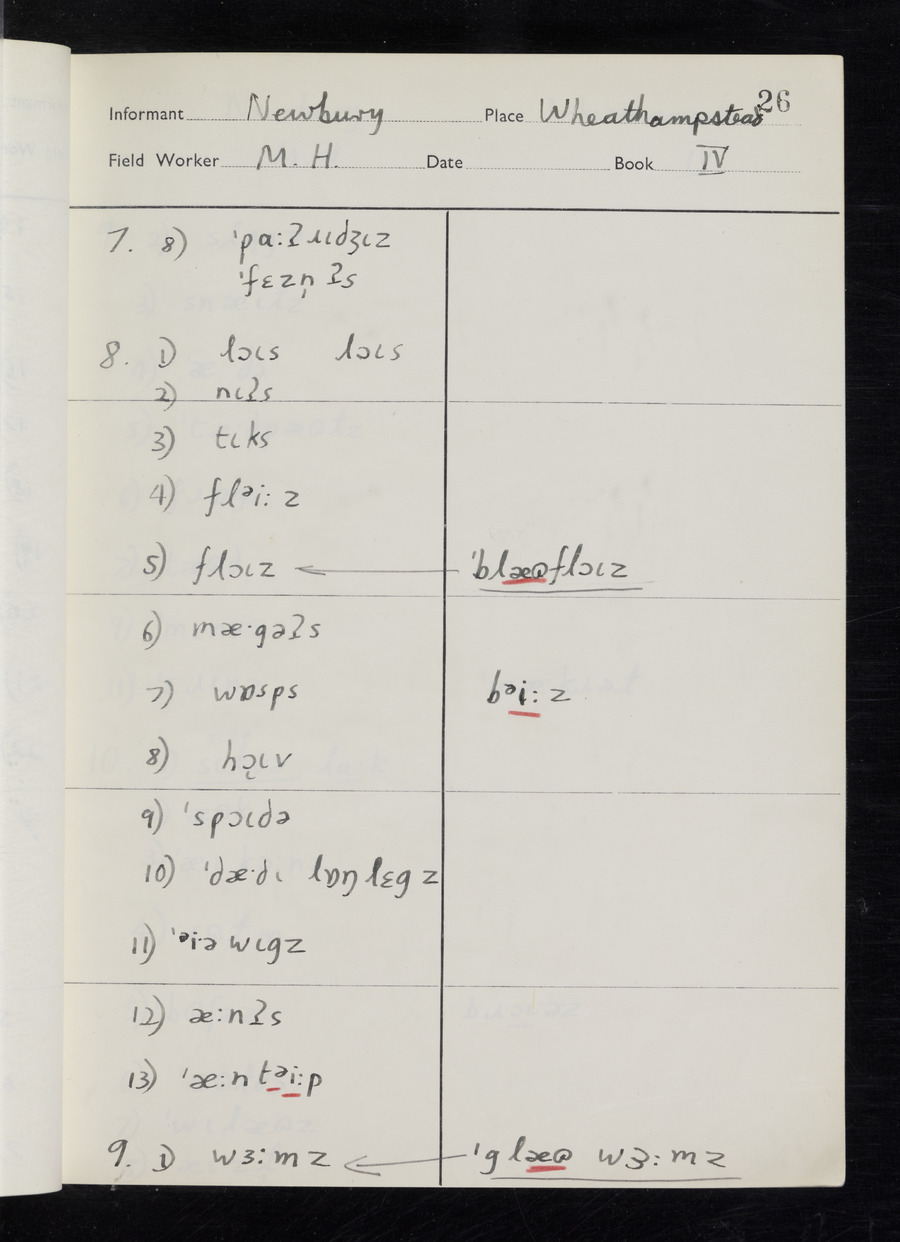 26
Informant Newbury Place Wheathampstead
Field Worker M. H. Date Book IV
7. 8) ˈpɑːʔɹɩdʒɩz
ˈfɛzn̩ʔs
8. 1) lɔɩs lɔɩs
2) nɩʔs
3) tɩks
4) flᵊiːz
5) flɔɩz ← ˈblæɷflɔɩz
6) mæ·gəʔs
7) wɒsps bᵊiːz
8) hɔ̜ɩv
9) ˈspɔɩdə
10) ˈdæ·dɩ lɒŋlɛgz
11) ˈᵊi·ə wɩgz
12) æːnʔs
13) ˈæːntᵊiːp
9. 1) wɜːmz ← ˈglæɷ wɜːmz